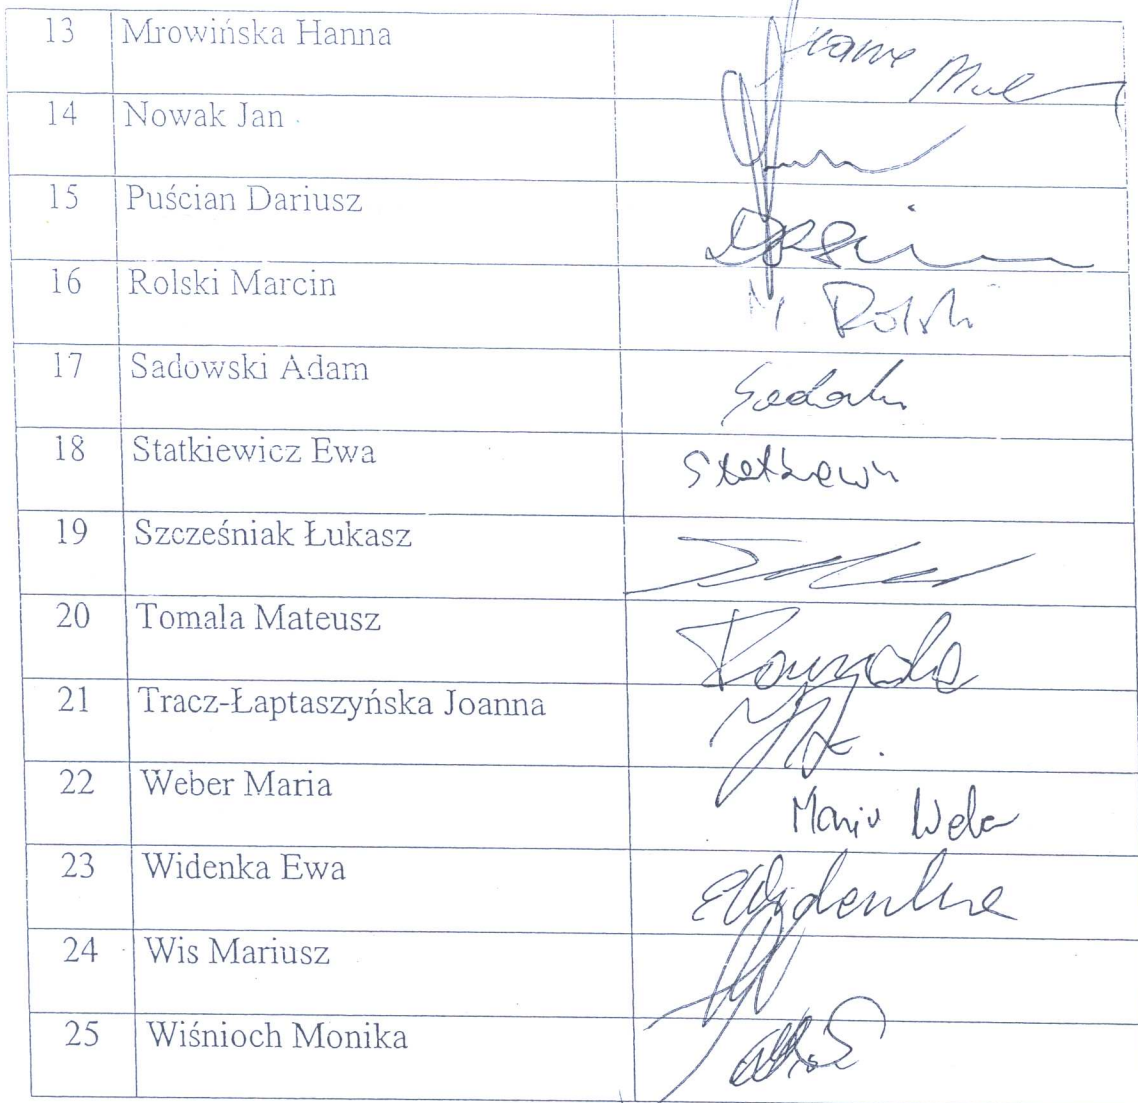 13 Mrowińska Hanna
14 Nowak Jan
15 Puścian Dariusz
16 Rolski Marcin M. Rolski
17 Sadowski Adam
18 Statkiewicz Ewa
19 Szcześniak Łukasz
20 Tomala Mateusz
21 Tracz-Łaptaszyńska Joanna
22 Weber Maria Maria Weber
23 Widenka Ewa EWidenka
24 Wis Mariusz
25 Wiśnioch Monika